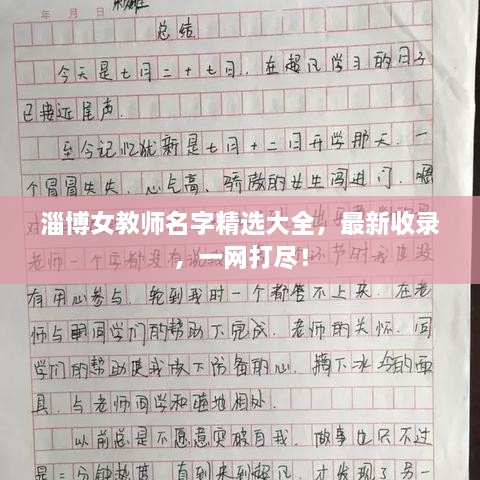 年 月 日
总结
今天是七月二十七日,在超凡学习的日子
已接近尾声.
至今记忆犹新是七月十二日开学那天,一
个冒冒失失、心气高、骄傲的女生闯进门,嗯
淄博女教师名字精选大全,最新收录
,一网打尽!
有用心参与,轮到我时一个都答不上来.在老
师与同学们的帮助下完成.老师的关怀.同
学们的帮助使我放下防备的心,摘下冰冷的面
具,与老师同学和睦地相处.
以前总是不愿意突破自我.做事也只不过
是三分钟热度,直到来到超凡,才发现了另一